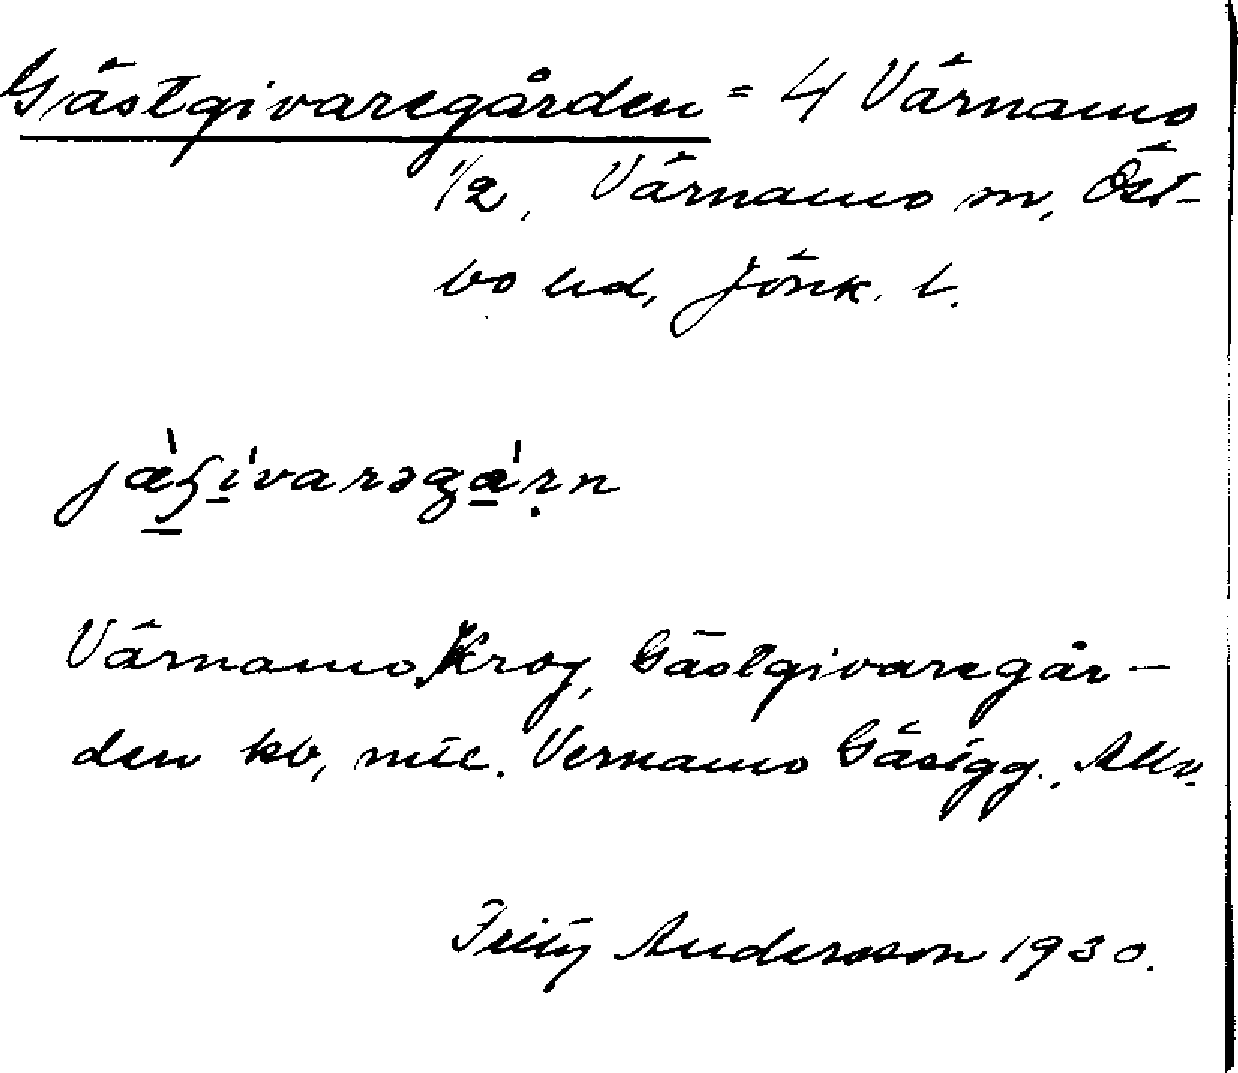 Gästgivaregården = 4 Värnamo
1/2, Värnamo sn, Öst-
bo hd, Jönk. l.
Värnamo Krog, Gästgivaregår-
den kb, mtl. Vernamo Gästgg.,
Fritz Andersson 1930.